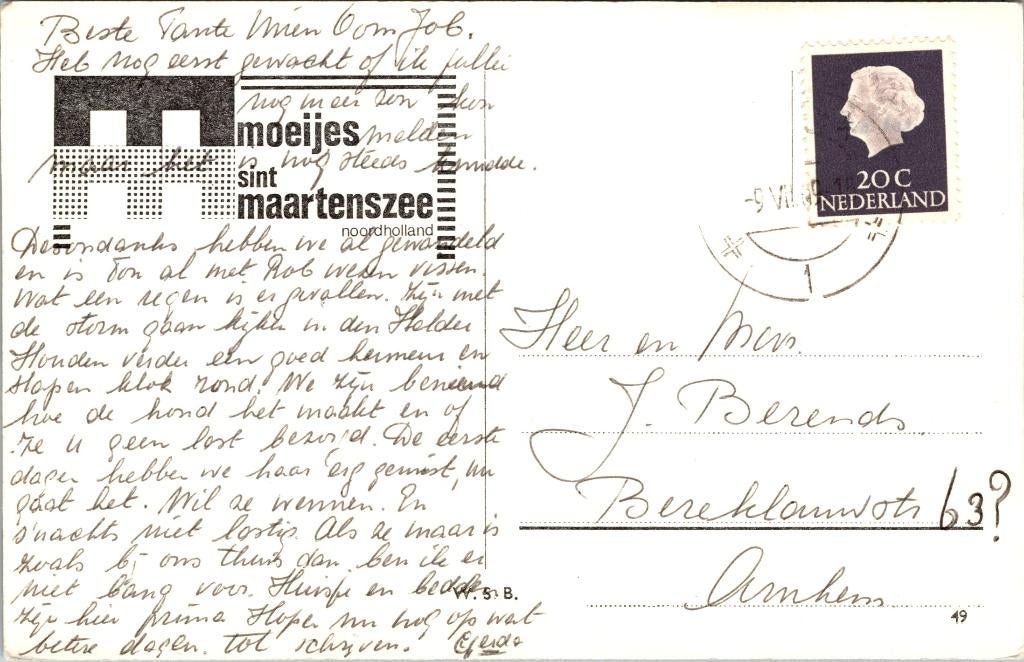 Beste Tante Mien Oom Job.
Heb nog eerst gewacht of ik jullie
nog meer zon kon
moeijes
melden
maar het is nog steeds
sint
maartenszee
noordholland
Desondanks hebben we al gewandeld
en is Ton al met Rob wezen vissen.
Wat een regen is er gevallen. Zijn met
de storm gaan kijken in den Helder
Houden verder een goed humeur en
slapen klok rond. We zijn benieuwd
hoe de hond het maakt en of
ze u geen last bezorgd. De eerste
dagen hebben we haar erg gemist, nu
gaat het. Wil ze wennen. En
s'nachts niet lastig. Als ze maar is
zoals bij ons thuis dan ben ik er
niet bang voor. Huisje en bedden
zijn hier prima Hopen nu nog op wat
betere dagen. tot schrijven. Gerda
W. S. B.
20 C
NEDERLAND
-9 VII
1
Heer en Mevr.
J. Berends
Bereklauwstr 63?
Arnhem
49